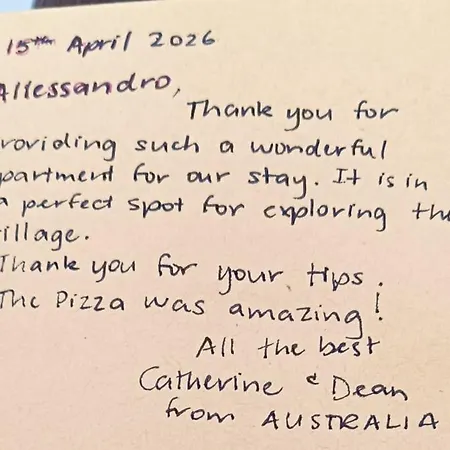 15th April 2026
Allessandro,
Thank you for
roviding such a wonderful
partment for our stay. It is in
a perfect spot for exploring the
illage.
Thank you for your tips.
The Pizza was amazing!
All the best
Catherine & Dean
from AUSTRALIA